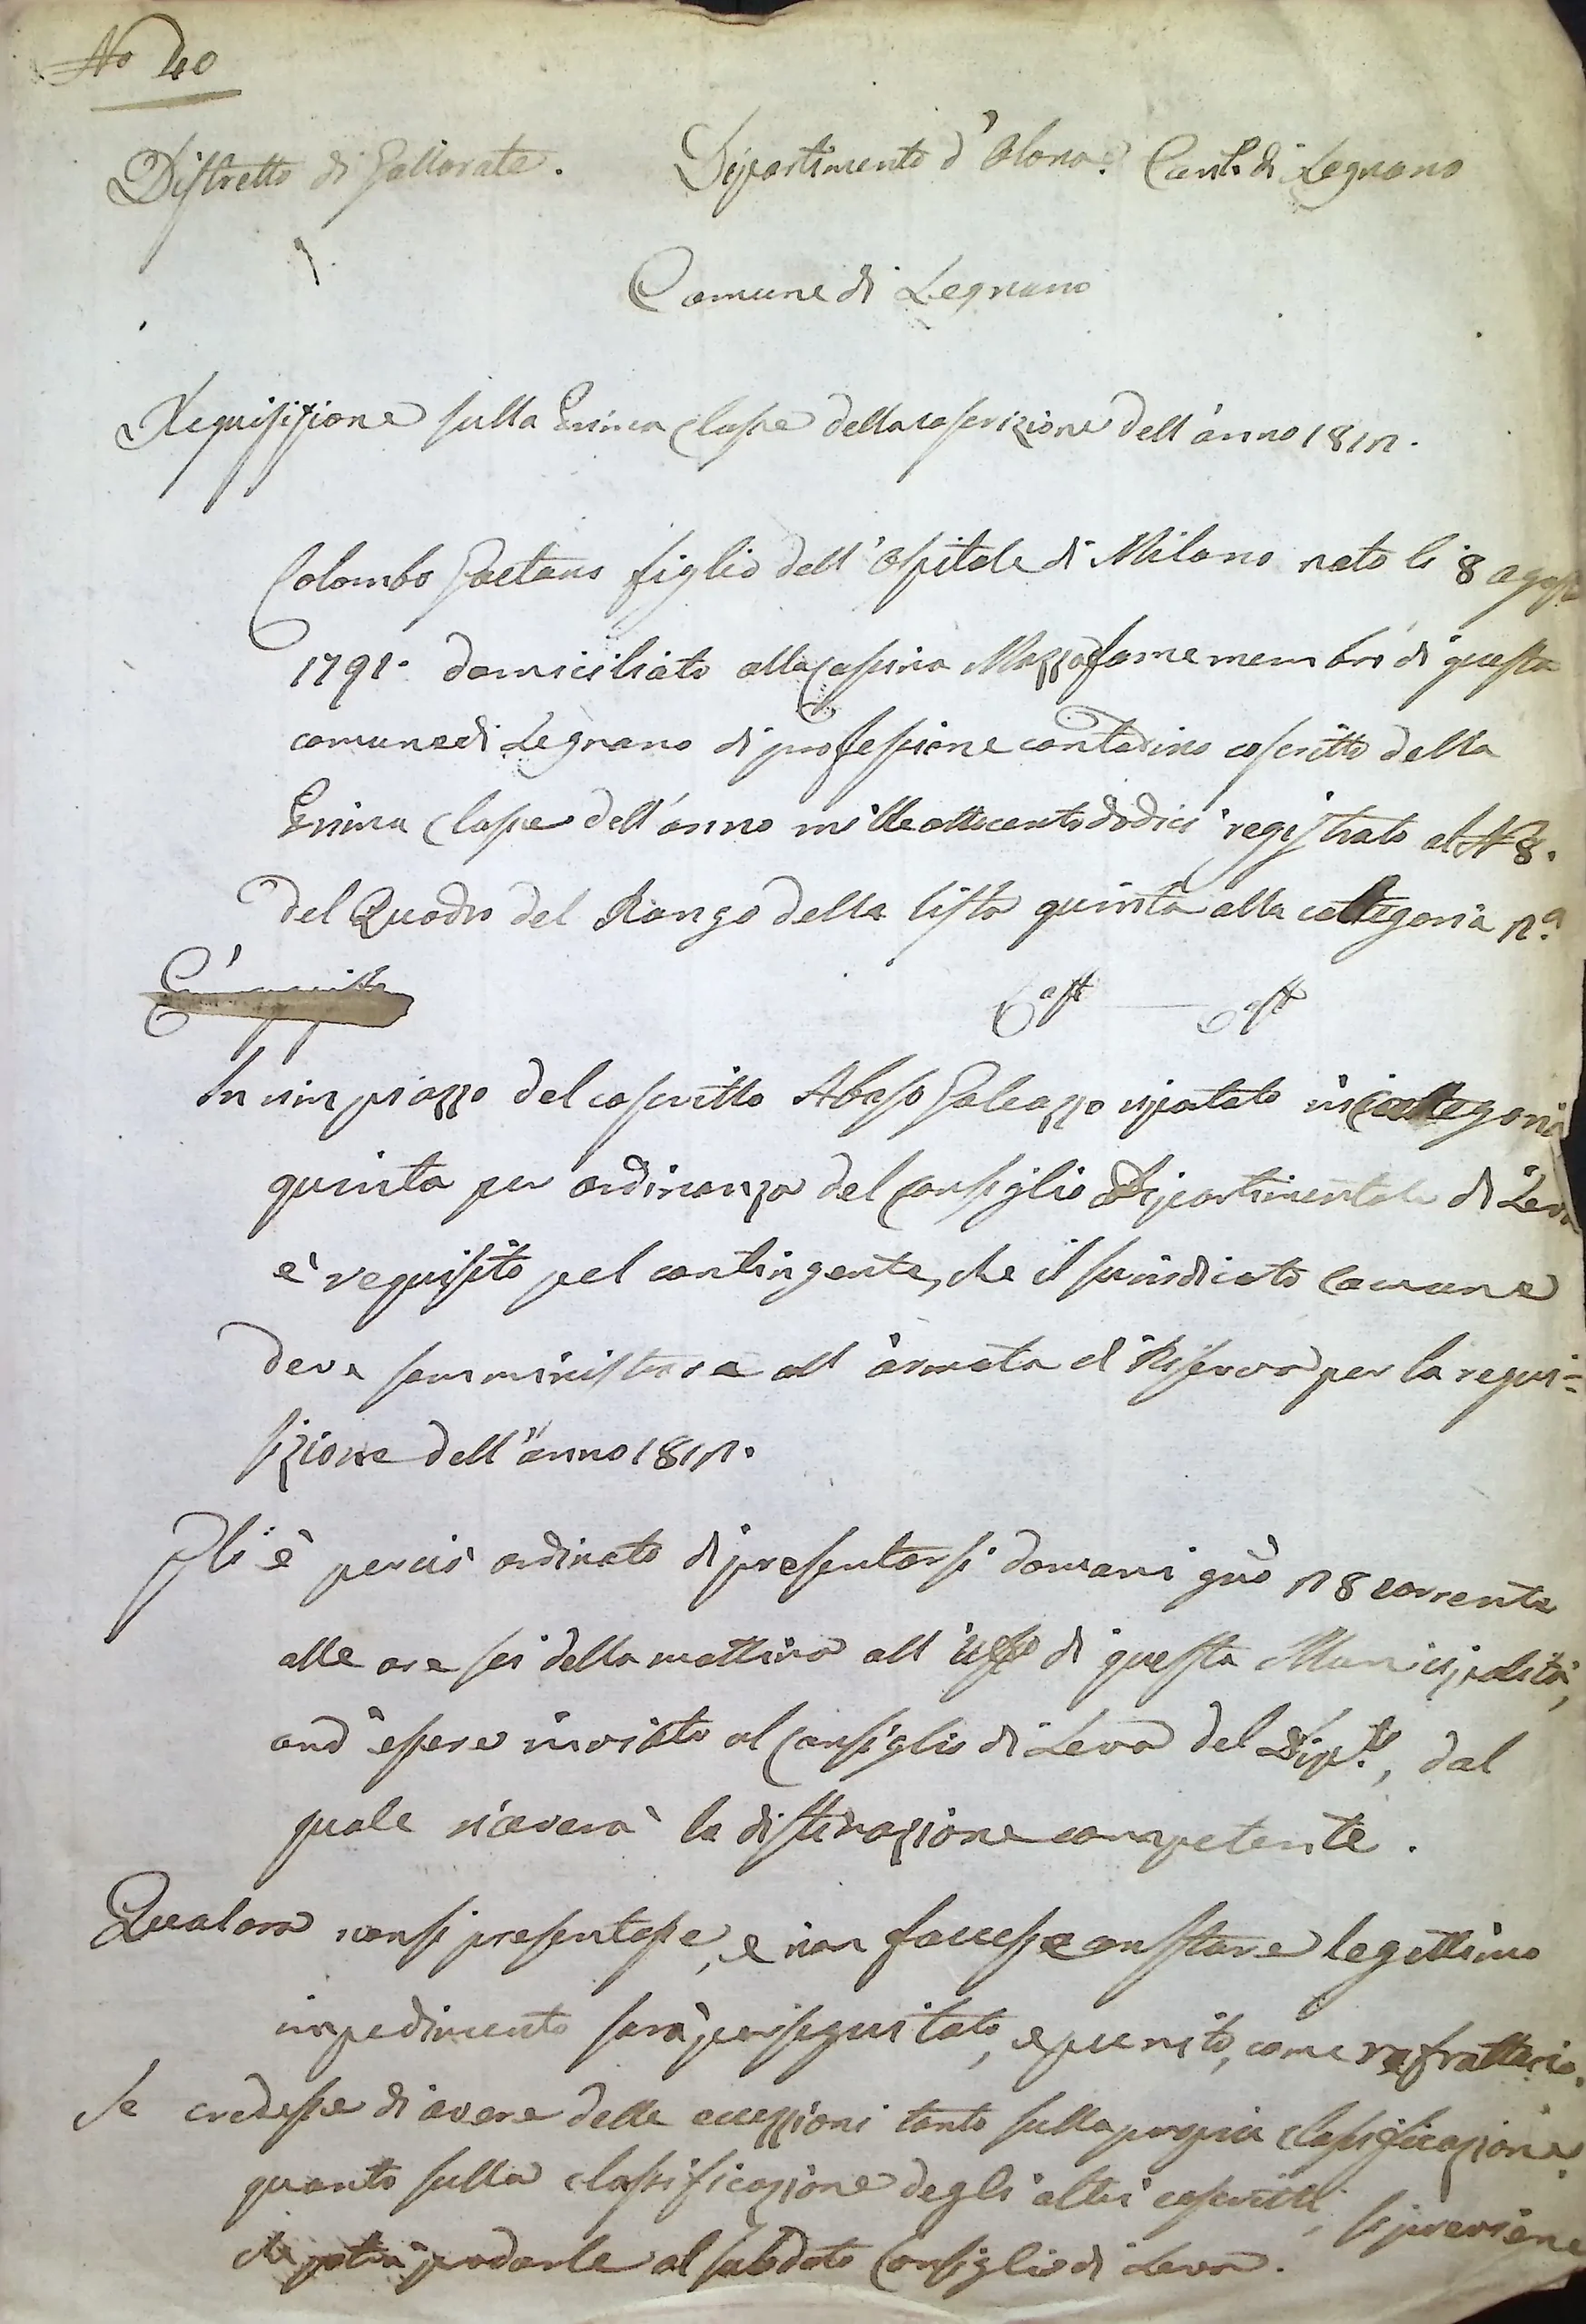 No 40
Distretto di Gallarate. Dipartimento d'Olona. Cant.e di Legnano
Comune di Legnano
Requisizione sulla Prima Classe della coscrizione dell'anno 1812.
Colombo Gaetano figlio dell'Ospitale di Milano nato li 8 agosto
1791. domiciliato alla Cassina Mazzafame membro di questa
comune di Legnano di professione contadino coscritto della
Prima Classe dell'anno mille ottocento dodici registrato al N 8.
del Quadro del Rango della lista quinta alla categoria 2.a
In rimpiazzo del coscritto Abaso Galeazzo riportato in Categoria
quinta per ordinanza del Consiglio Dipartimentale di Leva
è requisito pel contingente, che il surindicato Comune
deve somministrare all'armata ed Riserva per la requi=
sizione dell'anno 1812.
Gli è perciò ordinato di presentarsi domani gno 28 corrente
alle ore sei della mattina all'uffo di questa Municipalità,
ond'essere inviato al Consiglio di Leva del Dip.to, dal
quale riceverà la distinazione competente.
Qualora non si presentasse, e non facesse constare legittimo
impedimento sarà perseguitato, e punito, come refrattario.
Se credesse di avere delle eccezzioni tanto sulla propria classificazione
quanto sulla classificazione degli altri coscritti, si previene
che potrà produrle al sudato Consiglio di Leva.